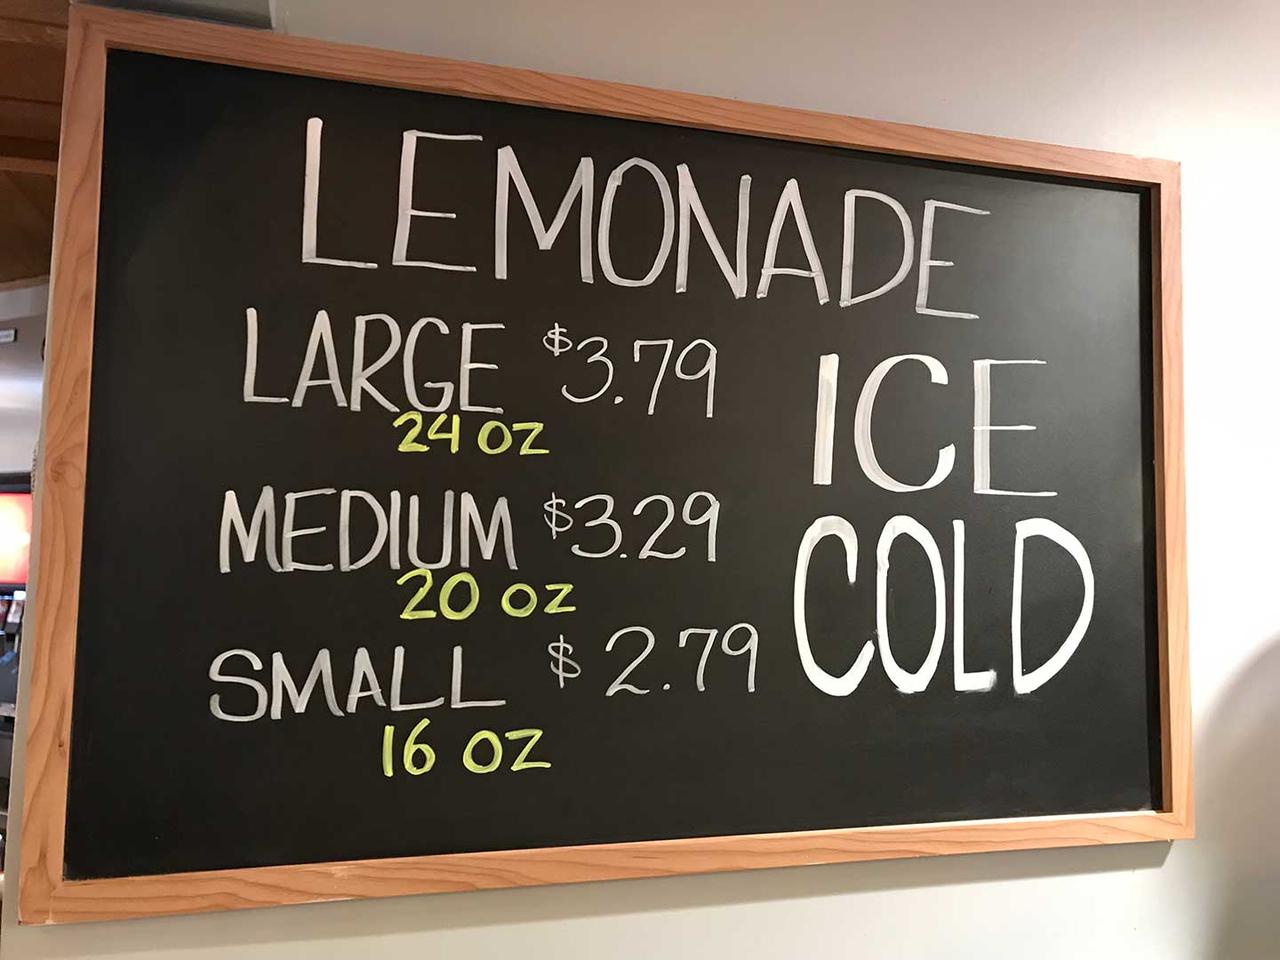 LEMONADE
LARGE $3.79
24 OZ
MEDIUM $3.29
20 OZ
SMALL $2.79
16 OZ
ICE
COLD